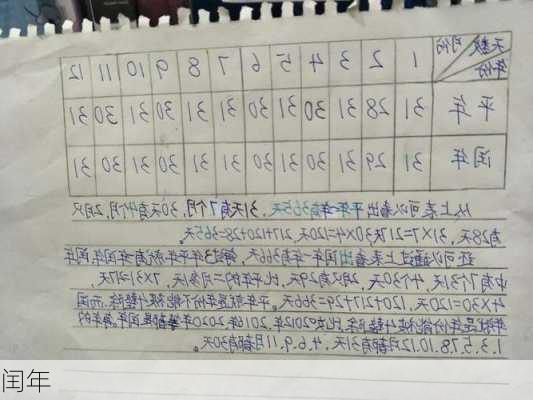 月份 天数 年份 1 2 3 4 5 6 7 8 9 10 11 12
平年 31 28 31 30 31 30 31 31 30 31 30 31
闰年 31 29 31 30 31 30 31 31 30 31 30 31
从上表可以看出平年全年有365天,31天有7个月,30天有4个月,2月只
有28天,31×7=217天,30×4=120天,217+120+28=365天。
还可以通过上表看出闰年全年有366天,每隔3个平年就有一个闰年,闰年
中有7个31天,4个30天,2月只有29天,比平年的二月多1天,7×31=217天,
4×30=120天,120+217+29=366天。平年就是年份不能被4整除,而闰
年就是年份能被4整除,比如2012年,2016年,2020年都是闰年,每年的
1.3.5.7.8.10.12月都有31天,4.6.9.11月都有30天。
闰年